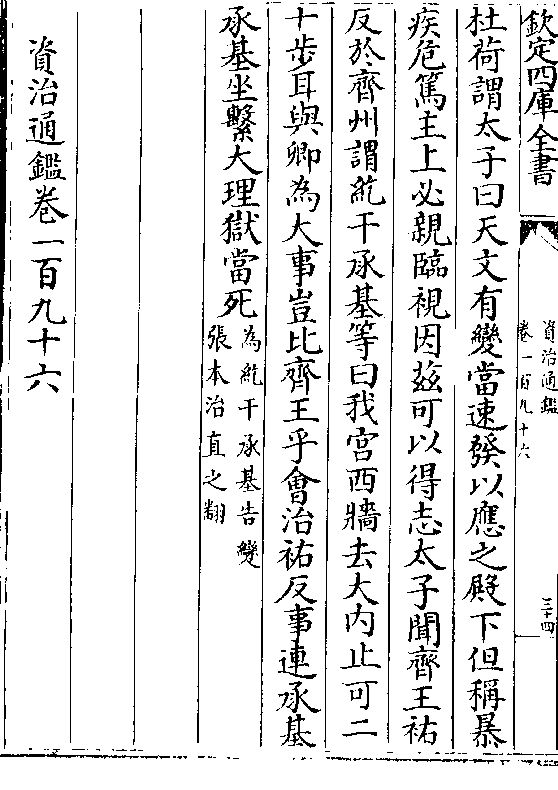 欽定四庫全書
資治通鑑
卷一百九十六
三十四
杜荷謂太子曰天文有變當速發以應之殿下但稱暴
疾危篤主上必親臨視因兹可以得志太子聞齊王祐
反於齊州謂紇干承基等曰我宫西牆去大内止可二
十步耳與卿為大事豈比齊王乎會治祐反事連承基
承基坐繫大理獄當死
為紇干承基告變
張本治直之翻
資治通鑑卷一百九十六